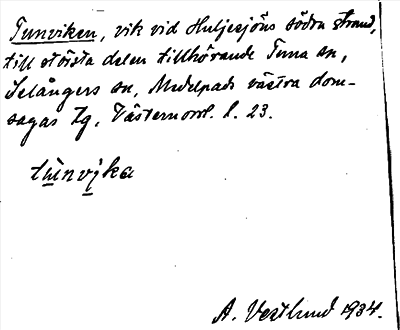 Tunviken, vik vid Huljesjöns södra strand,
till största delen tillhörande Tuna sn,
Selångers sn, Medelpads västra dom-
sagas tg, Västernorrl. l. 23.
tùnvika
A. Vestlund 1934.